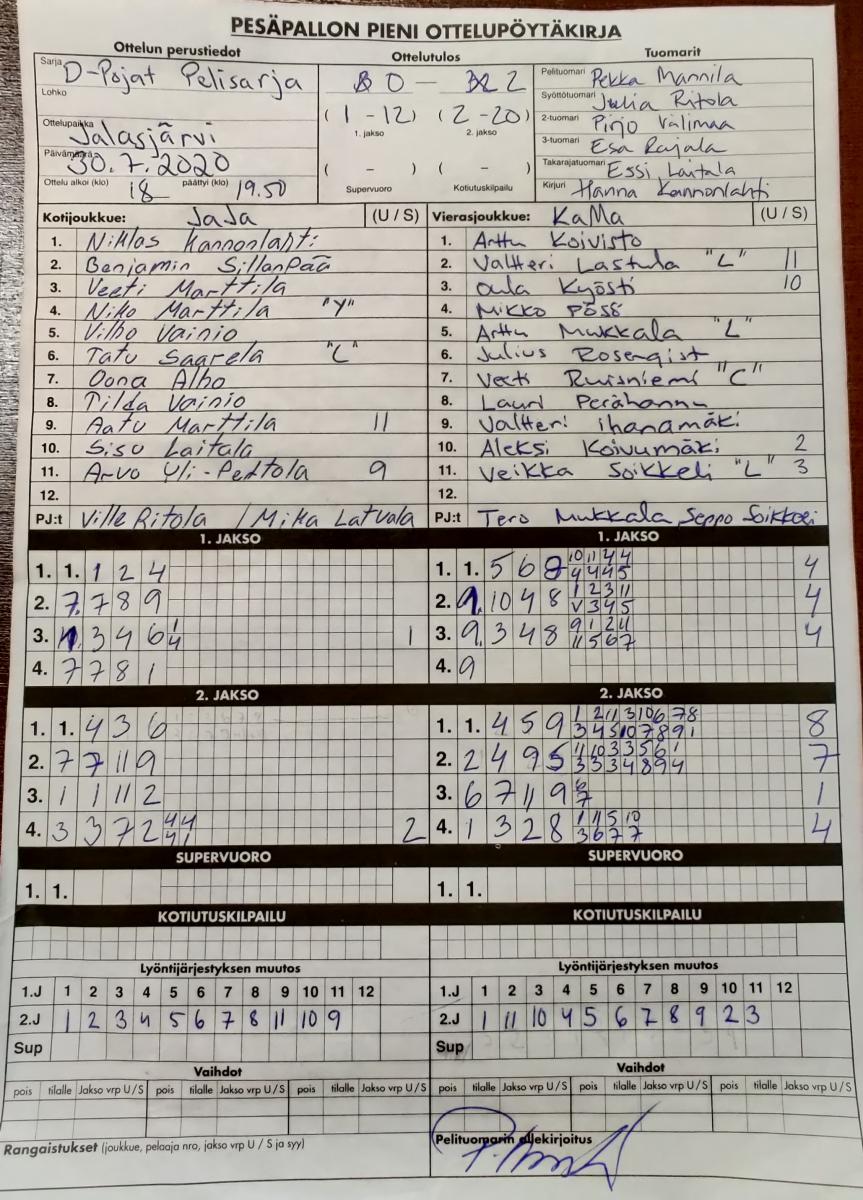 PESÄPALLON PIENI OTTELUPÖYTÄKIRJA
Ottelun perustiedot
Sarja D-Pojat Pelisarja
Lohko
Ottelupaikka Jalasjärvi
Päivämäärä 30.7.2020
Ottelu alkoi (klo) 18 päättyi (klo) 19.50
Ottelutulos
0 - 2
(1 - 12) (2 - 20)
1. jakso 2. jakso
( - ) ( - )
Supervuoro Kotiutuskilpailu
Tuomarit
Pelituomari Pekka Mannila
Syöttötuomari Julia Ritola
2-tuomari Pirjo Välimaa
3-tuomari Esa Rajala
Takarajatuomari Essi Laitala
Kirjuri Hanna Kannonlahti
Kotijoukkue: JaJa (U / S)
1. Niklas Kannonlahti
2. Benjamin Sillanpää
3. Veeti Marttila
4. Niko Marttila "Y"
5. Vilho Vainio
6. Tatu Saarela "C"
7. Oona Alho
8. Tilda Vainio
9. Aatu Marttila 11
10. Sisu Laitala
11. Arvo Yli-Pentola 9
12.
PJ:t Ville Ritola / Mika Latvala
Vierasjoukkue: KaMa (U / S)
1. Arttu Koivisto
2. Valtteri Lastula "L" 11
3. Oula Kyösti 10
4. Mikko Pöss
5. Arttu Mukkala "L"
6. Julius Rosenqist
7. Veeti Ruisniemi "C"
8. Lauri Perähannu
9. Valtteri ihanamäki
10. Aleksi Koivumäki 2
11. Veikka Soikkeli "L" 3
12.
PJ:t Tero Mukkala Seppo Soikkeli
1. JAKSO
1. 1. 1 2 4
2. 7. 7 8 9
3. 11. 3 4 6 1 1
4
4. 7 7 8 1
2. JAKSO
1. 1. 4 3 6
2. 7 7 11 9
3. 1 1 11 2
4. 3 3 7 2 4 4 2
4 1
SUPERVUORO
1. 1.
KOTIUTUSKILPAILU
1. JAKSO
1. 1. 5 6 8 10 11 4 4 4
4 4 4 5
2. 9. 10 4 8 1 2 3 11 4
V 3 4 5
3. 9. 3 4 8 9 1 2 4 4
11 5 6 7
4. 9
2. JAKSO
1. 1. 4 5 9 1 2 11 3 10 6 7 8 8
3 4 5 10 7 8 9 1
2. 2 4 9 5 11 10 3 3 5 6 1 7
3 3 3 4 8 9 4
3. 6 7 11 9 6 1
7
4. 1 3 2 8 1 11 5 10 4
3 6 7 7
SUPERVUORO
1. 1.
KOTIUTUSKILPAILU
Lyöntijärjestyksen muutos
1.J 1 2 3 4 5 6 7 8 9 10 11 12
2.J 1 2 3 4 5 6 7 8 11 10 9
Sup
Lyöntijärjestyksen muutos
1.J 1 2 3 4 5 6 7 8 9 10 11 12
2.J 1 11 10 4 5 6 7 8 9 2 3
Sup
Vaihdot
pois tilalle Jakso vrp U / S pois tilalle Jakso vrp U / S pois tilalle Jakso vrp U / S
Vaihdot
pois tilalle Jakso vrp U / S pois tilalle Jakso vrp U / S pois tilalle Jakso vrp U / S
Rangaistukset (joukkue, pelaaja nro, jakso vrp U / S ja syy)
Pelituomarin allekirjoitus